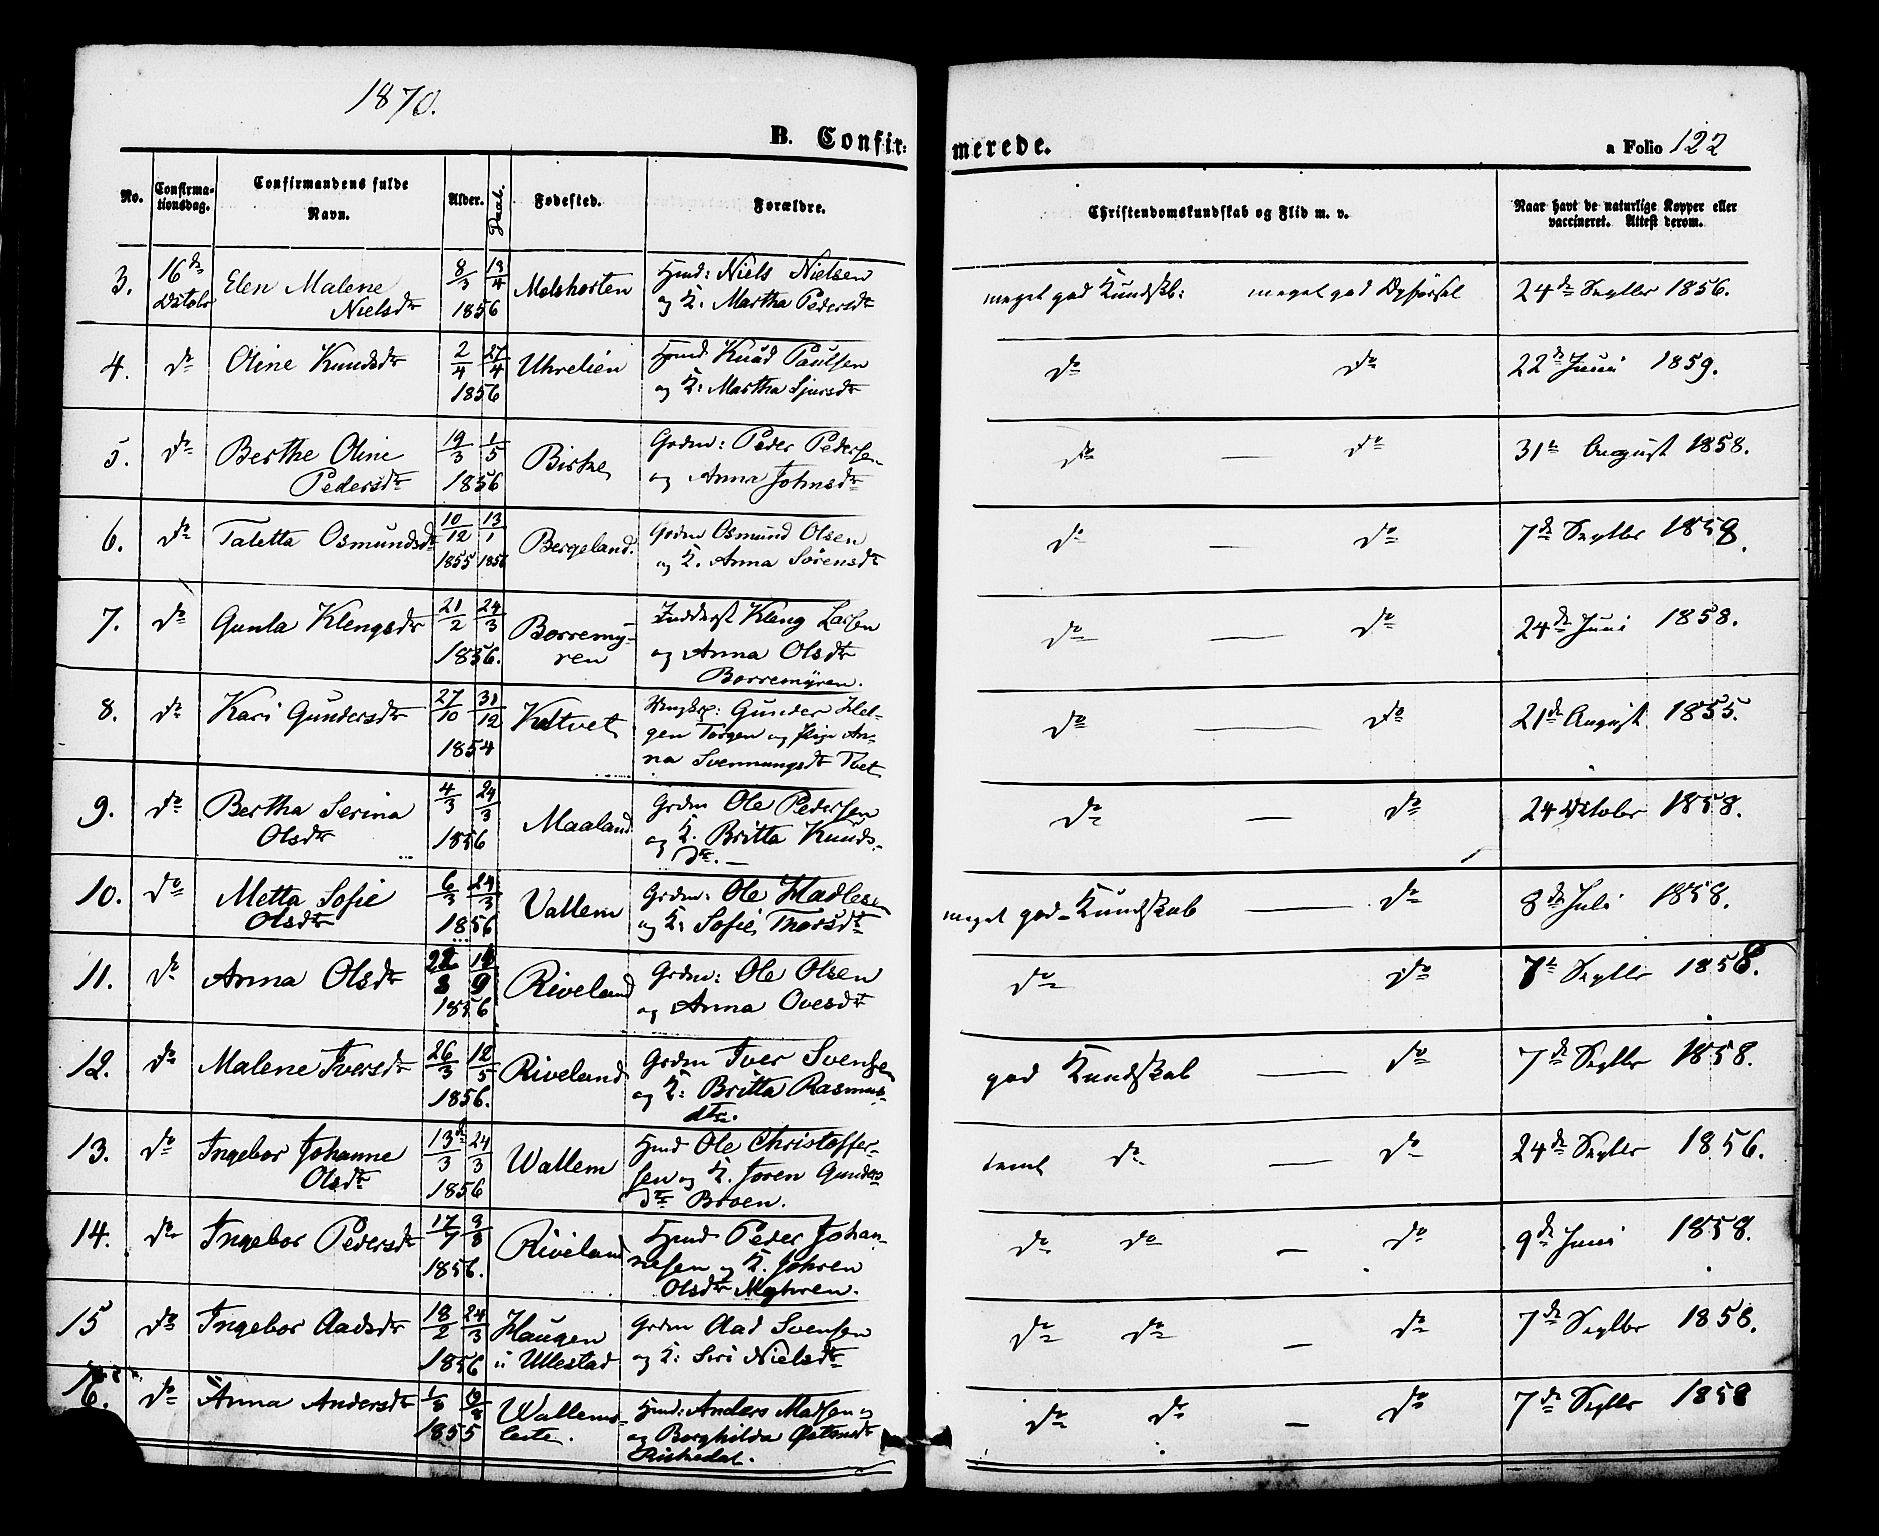 1870.
B. Confir-
merede.
a Folio 122
No. Confirma-tionsdag. Confirmandens fulde Navn. Alder. Daab. Fødested. Forældre. Christendomskundskab og Flid m. v. Naar havt de naturlige Kopper eller vaccineret. Attest derom.
3. 16de Octobr Elen Malene Nielsdtr 8/3 13/4 1856 Molshorten Hmd: Niels Nielsen og K. Martha Pedersdtr meget god Kundsk: meget god Opførsel 24de Septbr 1856.
4. do Oline Knudsdtr 2/4 27/4 1856 Uhrelien Hmd Knud Paulsen og K. Martha Sjursdtr do do 22de Juni 1859.
5. do Berthe Oline Pedersdtr 19/3 1/5 1856 Birke Grdm: Peder Pedersen og Anna Johnsdtr do — do 31te August 1858.
6. do Taletta Osmundsdtr 10/12 1855 13/1 1856 Bergeland. Grdm Osmund Olsen og K. Anna Sørensdtr do — do 7de Septbr 1858.
7. do Gunla Klengsdtr 21/2 24/3 1856. Borremyren Inderst Kleng Larsen og Anna Olsdtr Borremyren. do — do 24de Juni 1858.
8. do Kari Gundersdtr 27/10 31/12 1854 Kltvet Gunder Helgen Torgen og Pige Anna Svennungsdtr Tvet do — do 21de August 1855.
9. do Bertha Serina Olsdtr 4/3 24/3 1856 Maaland Grdm Ole Pedersen og K. Britta Knudsdtr. — do — do 24 Octobr 1858.
10. do Metta Sofie Olsdtr 6/3 24/3 1856 Vallem Grdm: Ole Hadlesen og K: Sofie Thorsdtr meget god Kundskab — do 8de Juli 1858.
11. do Anna Olsdtr 1856 Riveland Grdm: Ole Olsen og Anna Ovesdtr do do 7de Septbr 1858.
12. do Malene Iversdtr 26/3 12/5 1856. Riveland Grdm Iver Svensen og K: Britta Rasmusdtr. god Kundskab — do 7de Septbr 1858.
13. do Ingebor Johanne Olsdtr 13de/3 24/3 1856 Wallem Hmd Ole Christoffersen og K. Joren Gundersdtr Broen. temt do — do 24de Septbr 1856.
14. do Ingebor Pedersdtr 1856. Riveland Hmd Peder Johannesen og K. Johren Olsdtr Myhren. do do — do 9de Juni 1858.
15 do Ingebor Aadsdtr 18/2 24/3 1856 Haugen i Ullestad Grdm Aad Svensen og K: Siri Nielsdtr do do — do 7de Septbr 1858.
16. do Anna Andersdtr 1855 Wallemsleite. Hmd: Anders Madsen og Borghilda Østensdtr Riskedal. do do — do 7de Septbr 1858